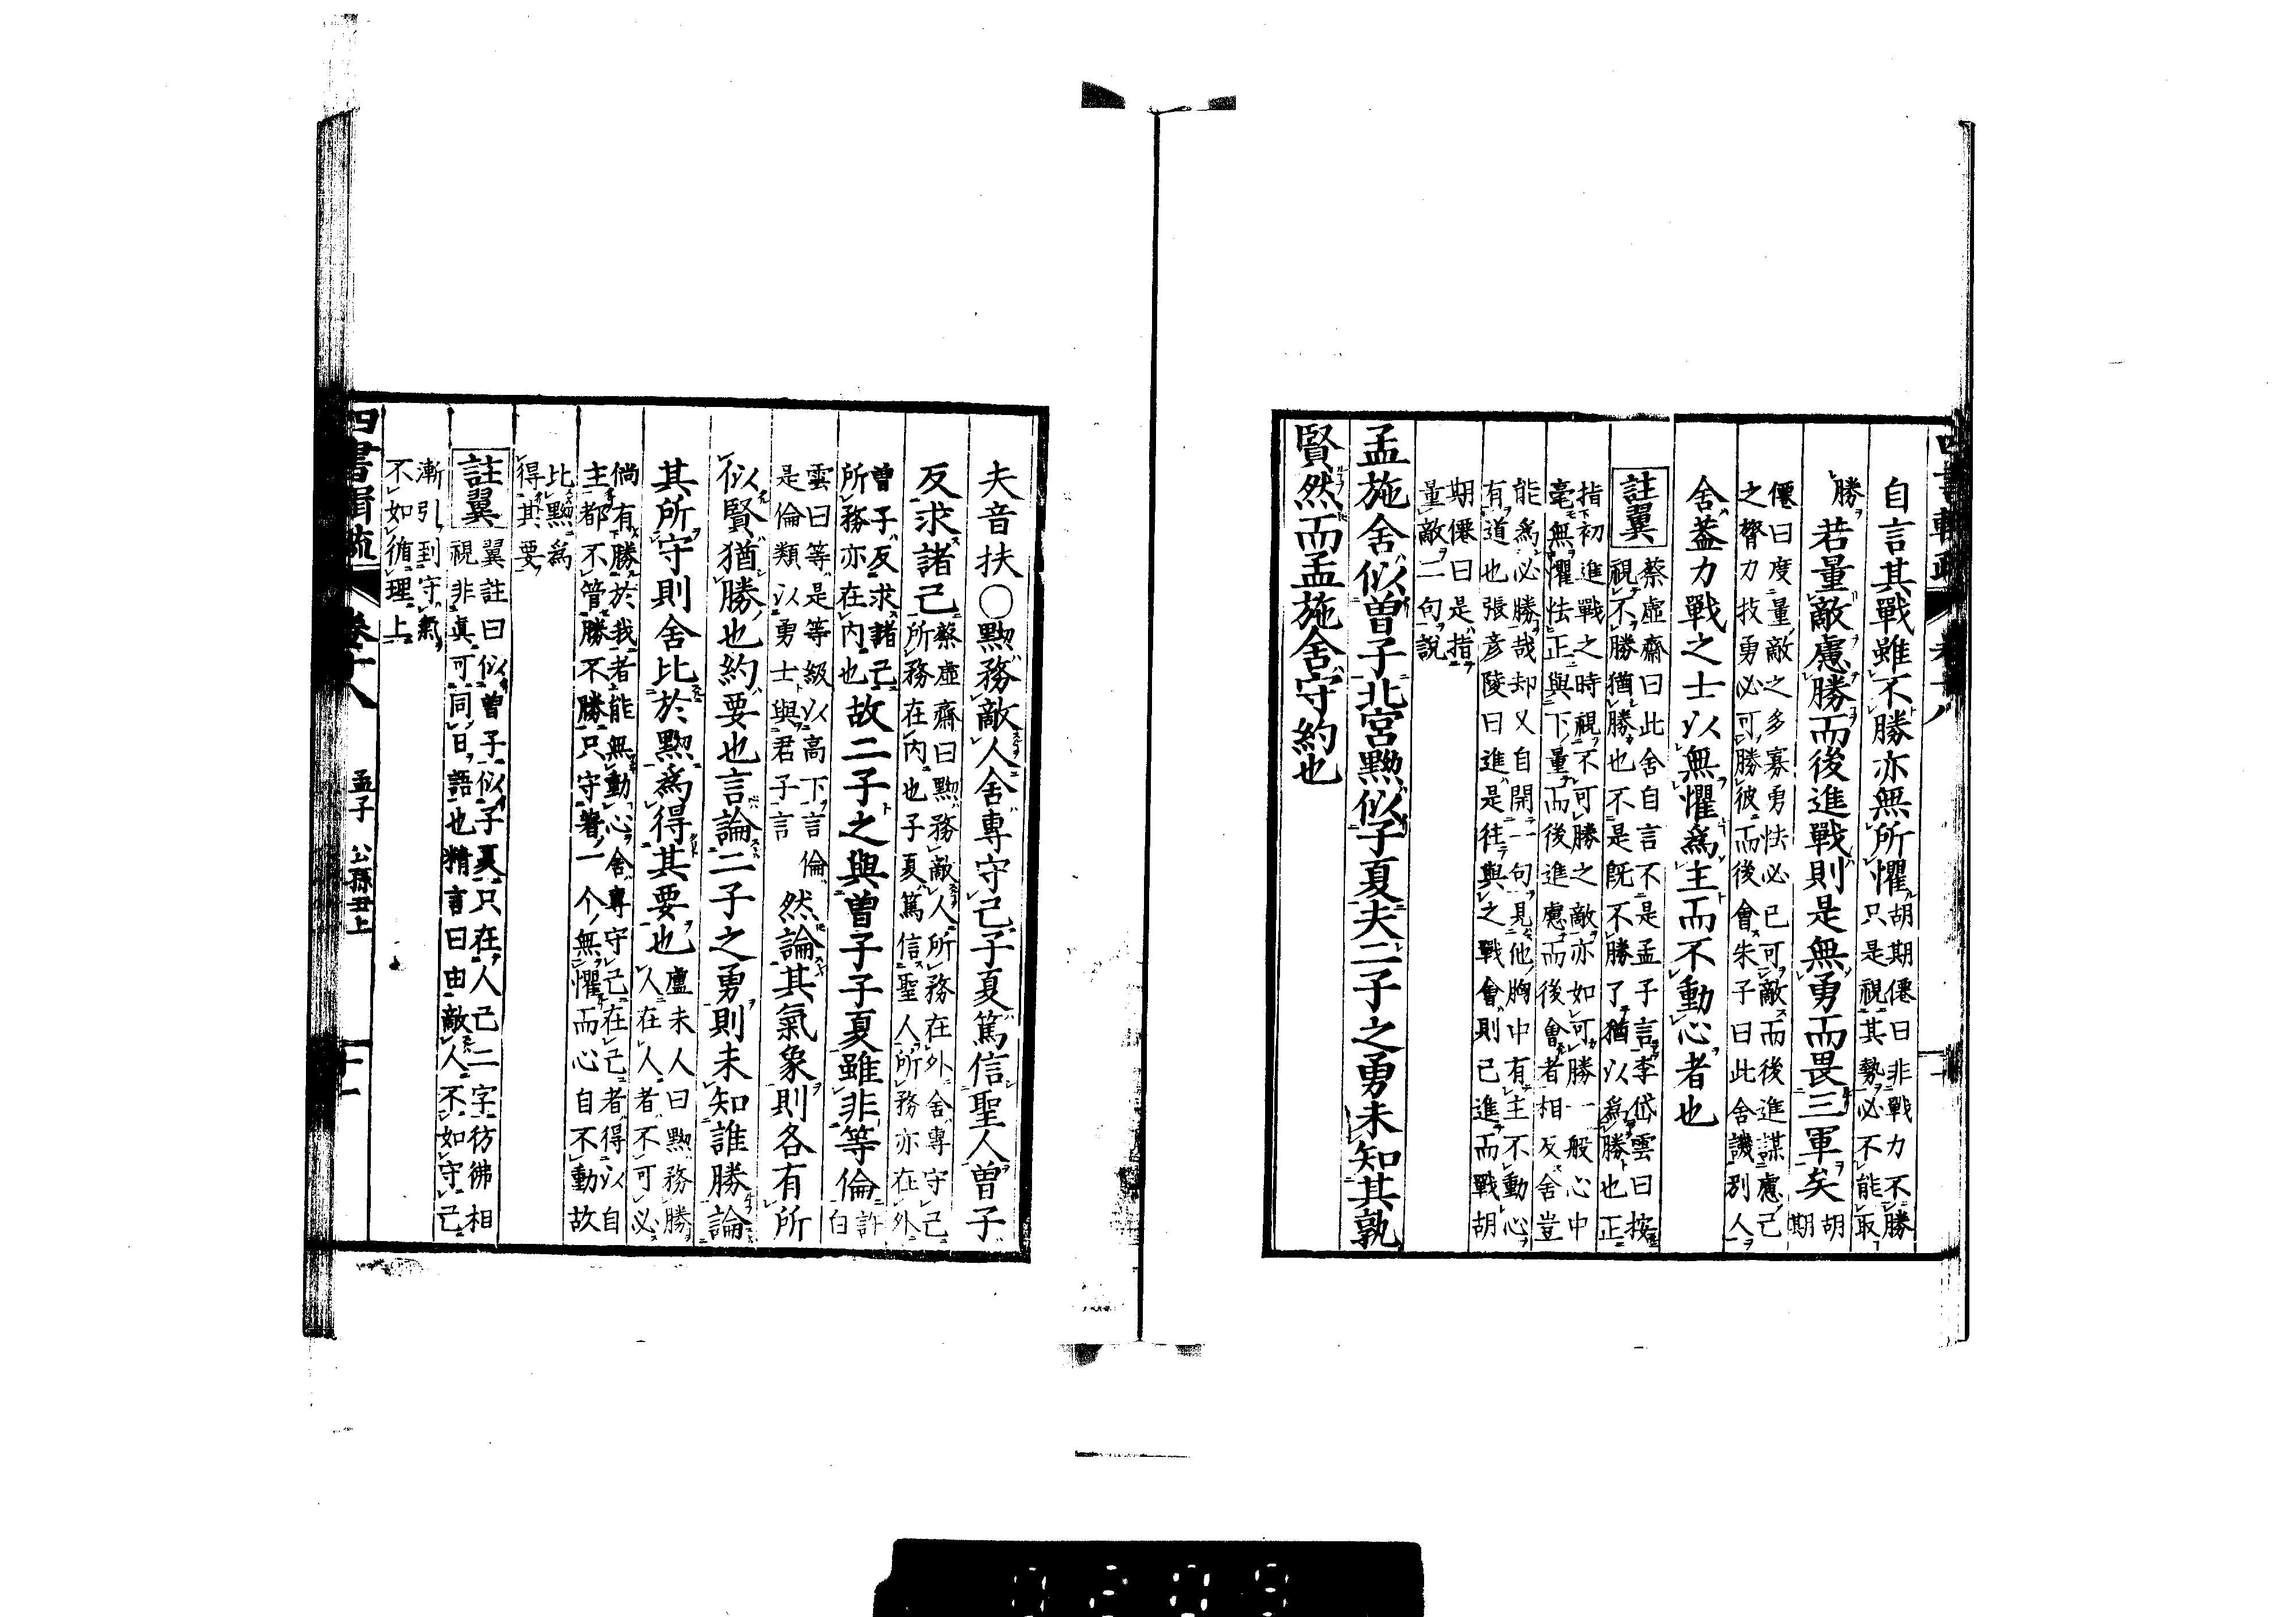 自言其戰雖不勝亦無所懼
胡期僊曰非戰力不勝
只是視其勢必不能取
勝
若量敵慮勝而後進戰則是無勇而畏三軍矣
胡
期
僊曰度量敵之多寡勇怯必已可敵而後進謀慮己
之膂力技勇必可勝彼而後會朱子曰此舍譏別人
舍蓋力戰之士以無懼爲主而不動心者也
註翼
蔡虛齋曰此舍自言不是孟子言李岱雲曰按
視不勝猶勝也不是既不勝了猶以爲勝也正
指初進戰之時視不可勝之敵亦如可勝一般心中
毫無懼怯正與下量而後進慮而後會者相反舍豈
能爲必勝哉却又自開一句見他胸中有主不動心
有道也張彦陵曰進是往與之戰會則已進而戰胡
期僊曰是指
量敵二句說
孟施舍似曾子北宮黝似子夏夫二子之勇未知其孰
賢然而孟施舍守約也
夫音扶○黝務敵人舍專守己子夏篤信聖人曾子
反求諸己
蔡虛齋曰黝務敵人所務在外舍專守己
所務在內也子夏篤信聖人所務亦在外
曾子反求諸己
所務亦在內也
故二子之與曾子子夏雖非等倫
許
白
雲曰等是等級以高下言倫
是倫類以勇士與君子言
然論其氣象則各有所
似賢猶勝也約要也言論二子之勇則未知誰勝論
其所守則舍比於黝爲得其要也
盧未人曰黝務勝
人在人者不可必
倘有勝於我者能無動心舍專守己在己者得以自
主都不管勝不勝只守著一个無懼而心自不動故
比黝爲
得其要
註翼
翼註曰似曾子似子夏只在人己二字彷彿相
視非真可同日語也精言曰由敵人不如守己
漸引到守氣
不如循理上
四書輯疏
卷十八
孟子
公孫丑上
十一